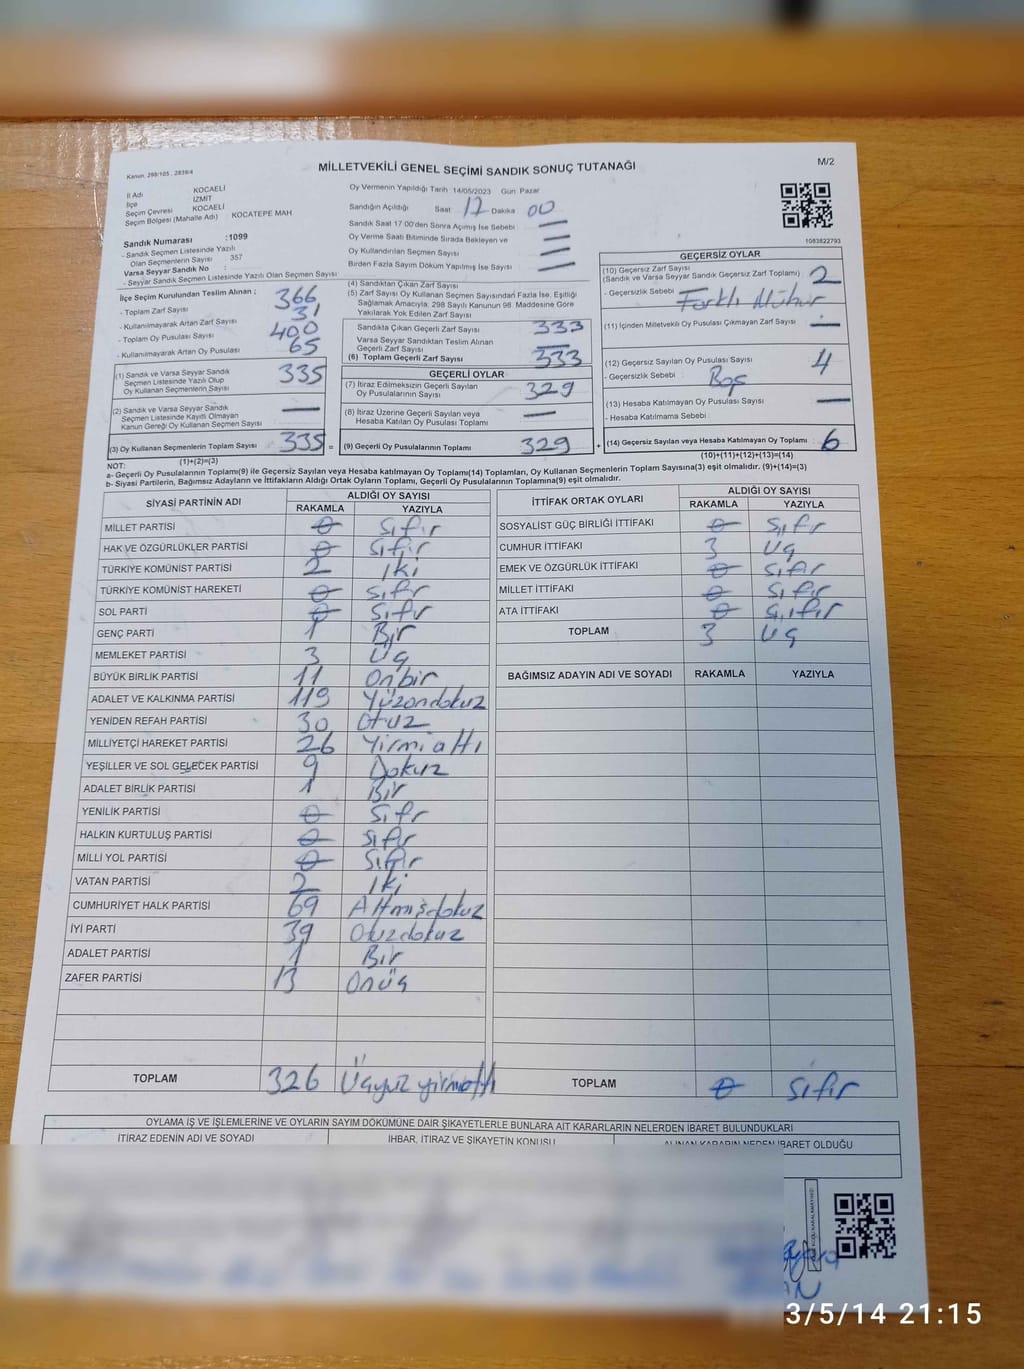 Kanun, 298/105 , 2839/4
MİLLETVEKİLİ GENEL SEÇİMİ SANDIK SONUÇ TUTANAĞI
M/2
İl Adı KOCAELİ
İlçe İZMİT
Seçim Çevresi KOCAELİ
Seçim Bölgesi (Mahalle Adı) KOCATEPE MAH
Sandık Numarası :1099
- Sandık Seçmen Listesinde Yazılı
Olan Seçmenlerin Sayısı : 357
Varsa Seyyar Sandık No :
- Seyyar Sandık Seçmen Listesinde Yazılı Olan Seçmen Sayısı :
Oy Vermenin Yapıldığı Tarih 14/05/2023 Gün Pazar
Sandığın Açıldığı Saat 17 Dakika 00
Sandık Saat 17 00'den Sonra Açımış İse Sebebi —
Oy Verme Saati Bitiminde Sırada Bekleyen ve —
Oy Kullandırılan Seçmen Sayısı —
Birden Fazla Sayım Döküm Yapılmış İse Sayısı —
1083822793
İlçe Seçim Kurulundan Teslim Alınan ;
- Toplam Zarf Sayısı 366
- Kullanılmayarak Artan Zarf Sayısı 31
- Toplam Oy Pusulası Sayısı 400
- Kullanılmayarak Artan Oy Pusulası 65
(1) Sandık ve Varsa Seyyar Sandık
Seçmen Listesinde Yazılı Olup
Oy Kullanan Seçmenlerin Sayısı 335
(2) Sandık ve Varsa Seyyar Sandık
Seçmen Listesinde Kayıtlı Olmayan
Kanun Gereği Oy Kullanan Seçmen Sayısı —
(3) Oy Kullanan Seçmenlerin Toplam Sayısı 335 =
(1)+(2)=(3)
(4) Sandıktan Çıkan Zarf Sayısı
(5) Zarf Sayısı Oy Kullanan Seçmen Sayısından Fazla İse, Eşitliği
Sağlamak Amacıyla, 298 Sayılı Kanunun 98. Maddesine Göre
Yakılarak Yok Edilen Zarf Sayısı
Sandıkta Çıkan Geçerli Zarf Sayısı 333
Varsa Seyyar Sandıktan Teslim Alınan
Geçerli Zarf Sayısı —
(6) Toplam Geçerli Zarf Sayısı 333
GEÇERLİ OYLAR
(7) İtiraz Edilmeksizin Geçerli Sayılan
Oy Pusulalarının Sayısı 329
(8) İtiraz Üzerine Geçerli Sayılan veya
Hesaba Katılan Oy Pusulası Toplamı —
(9) Geçerli Oy Pusulalarının Toplamı 329 +
GEÇERSİZ OYLAR
(10) Geçersiz Zarf Sayısı
(Sandık ve Varsa Seyyar Sandık Geçersiz Zarf Toplamı) 2
- Geçersizlik Sebebi : Farklı Mühür
(11) İçinden Milletvekili Oy Pusulası Çıkmayan Zarf Sayısı —
(12) Geçersiz Sayılan Oy Pusulası Sayısı 4
- Geçersizlik Sebebi : Boş
(13) Hesaba Katılmayan Oy Pusulası Sayısı —
- Hesaba Katılmama Sebebi :
(14) Geçersiz Sayılan veya Hesaba Katılmayan Oy Toplamı 6
(10)+(11)+(12)+(13)=(14)
NOT:
a- Geçerli Oy Pusulalarının Toplamı(9) ile Geçersiz Sayılan veya Hesaba katılmayan Oy Toplamı(14) Toplamları, Oy Kullanan Seçmenlerin Toplam Sayısına(3) eşit olmalıdır. (9)+(14)=(3)
b- Siyasi Partilerin, Bağımsız Adayların ve İttifakların Aldığı Ortak Oyların Toplamı, Geçerli Oy Pusulalarının Toplamına(9) eşit olmalıdır.
SİYASİ PARTİNİN ADI ALDIĞI OY SAYISI
RAKAMLA YAZIYLA
MİLLET PARTİSİ 0 Sıfır
HAK VE ÖZGÜRLÜKLER PARTİSİ 0 Sıfır
TÜRKİYE KOMÜNİST PARTİSİ 2 İki
TÜRKİYE KOMÜNİST HAREKETİ 0 Sıfır
SOL PARTİ 0 Sıfır
GENÇ PARTİ 1 Bir
MEMLEKET PARTİSİ 3 Üç
BÜYÜK BİRLİK PARTİSİ 11 Onbir
ADALET VE KALKINMA PARTİSİ 119 Yüzondokuz
YENİDEN REFAH PARTİSİ 30 Otuz
MİLLİYETÇİ HAREKET PARTİSİ 26 Yirmialtı
YEŞİLLER VE SOL GELECEK PARTİSİ 9 Dokuz
ADALET BİRLİK PARTİSİ 1 Bir
YENİLİK PARTİSİ 0 Sıfır
HALKIN KURTULUŞ PARTİSİ 0 Sıfır
MİLLİ YOL PARTİSİ 0 Sıfır
VATAN PARTİSİ 2 İki
CUMHURİYET HALK PARTİSİ 69 Altmışdokuz
İYİ PARTİ 39 Otuzdokuz
ADALET PARTİSİ 1 Bir
ZAFER PARTİSİ 13 Onüç
TOPLAM 326 Üçyüz yirmialtı
İTTİFAK ORTAK OYLARI ALDIĞI OY SAYISI
RAKAMLA YAZIYLA
SOSYALİST GÜÇ BİRLİĞİ İTTİFAKI 0 Sıfır
CUMHUR İTTİFAKI 3 Üç
EMEK VE ÖZGÜRLÜK İTTİFAKI 0 Sıfır
MİLLET İTTİFAKI 0 Sıfır
ATA İTTİFAKI 0 Sıfır
TOPLAM 3 Üç
BAĞIMSIZ ADAYIN ADI VE SOYADI RAKAMLA YAZIYLA
TOPLAM 0 Sıfır
OYLAMA İŞ VE İŞLEMLERİNE VE OYLARIN SAYIM DÖKÜMÜNE DAİR ŞİKAYETLERLE BUNLARA AİT KARARLARIN NELERDEN İBARET BULUNDUKLARI
İTİRAZ EDENİN ADI VE SOYADI İHBAR, İTİRAZ VE ŞİKAYETİN KONUSU ALINAN KARARIN NEDEN İBARET OLDUĞU
3/5/14 21:15